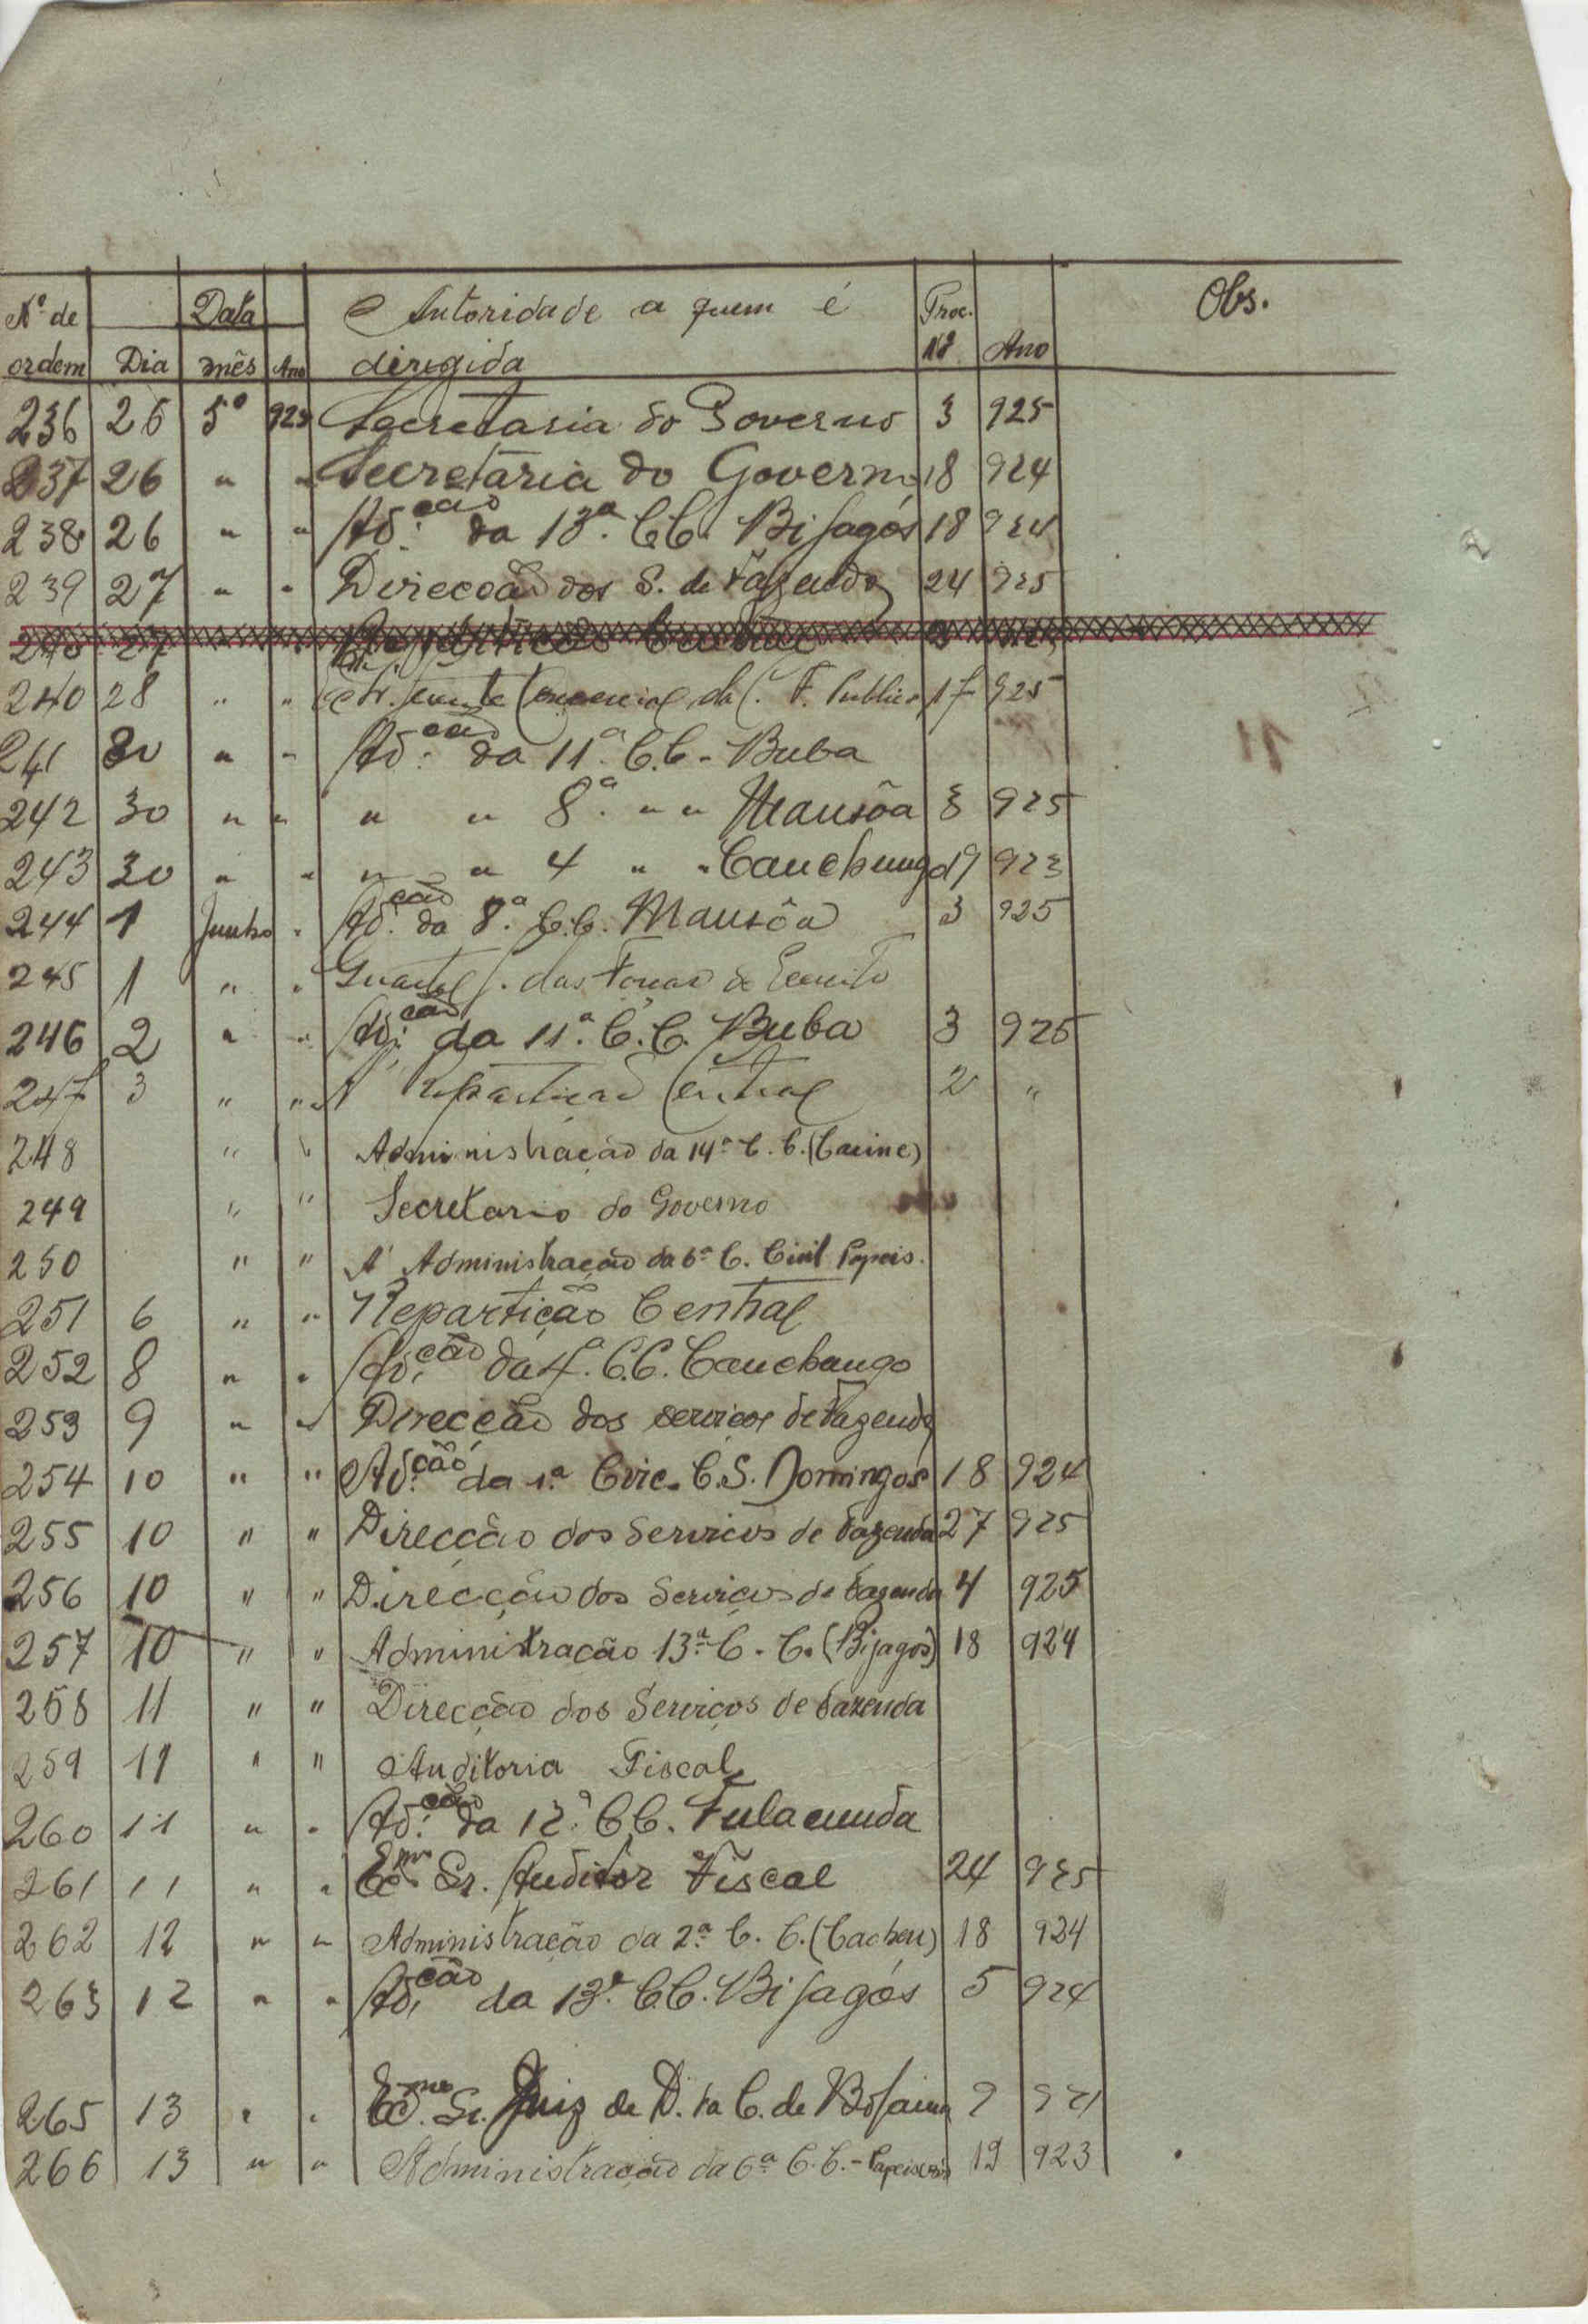 Nº de ordem | Data Dia mês Ano | Autoridade a quem é dirigida | Proc. Nº | Ano | Obs.
236 26 5º 925 Secretaria do Governo 3 925
237 26 " " Secretaria do Governo 18 924
238 26 " " Ad.ção da 13ª C.C. Bijagós 18 924
239 27 " " Direcção dos S. de Fazenda 24 925
240 27 Repartição Central
240 28 " " da F. Publica 17 925
241 30 " " Ad.ção da 11ª C.C. - Buba
242 30 " " " " 8ª " " Mansôa 3 925
243 30 " " " " 4 " " Canchungo 19 923
244 1 Junho " Ad.ção da 8ª C.C. Mansôa 3 925
245 1 " " Quartel G. das Forças de
246 2 " " Ad.ção da 11ª C.C. Buba 3 925
247 3 " " A' Repartição Central 2 "
248 " " Administração da 14ª C. C. (Cacine)
249 " " Secretario do Governo
250 " " A' Administração da 6ª C. Civil Papeis.
251 6 " " Repartição Central
252 8 " " Ad.ção da 4ª. C.C. Canchungo
253 9 " " Direcção dos serviços de Fazenda
254 10 " " Ad.ção da 1ª Circ. C. S. Domingos 18 924
255 10 " " Direcção dos Serviços de Fazenda 27 925
256 10 " " Direcção dos Serviços de Fazenda 4 925
257 10 " " Administração 13ª C. C. (Bijagós) 18 924
258 11 " " Direcção dos Serviços de Fazenda
259 11 " " Auditoria Fiscal
260 11 " " Ad.ção da 12ª C.C. Fulacunda
261 11 " " Exmo Sr. Auditor Fiscal 24 925
262 12 " " Administração da 2ª C. C. (Cacheu) 18 924
263 12 " " Ad.ção da 13ª C.C. Bijagós 5 924
265 13 " " Exmo. Sr. Juiz de D. da C. de Bolama 9
266 13 " " Administração da 6ª C. C. - 19 923